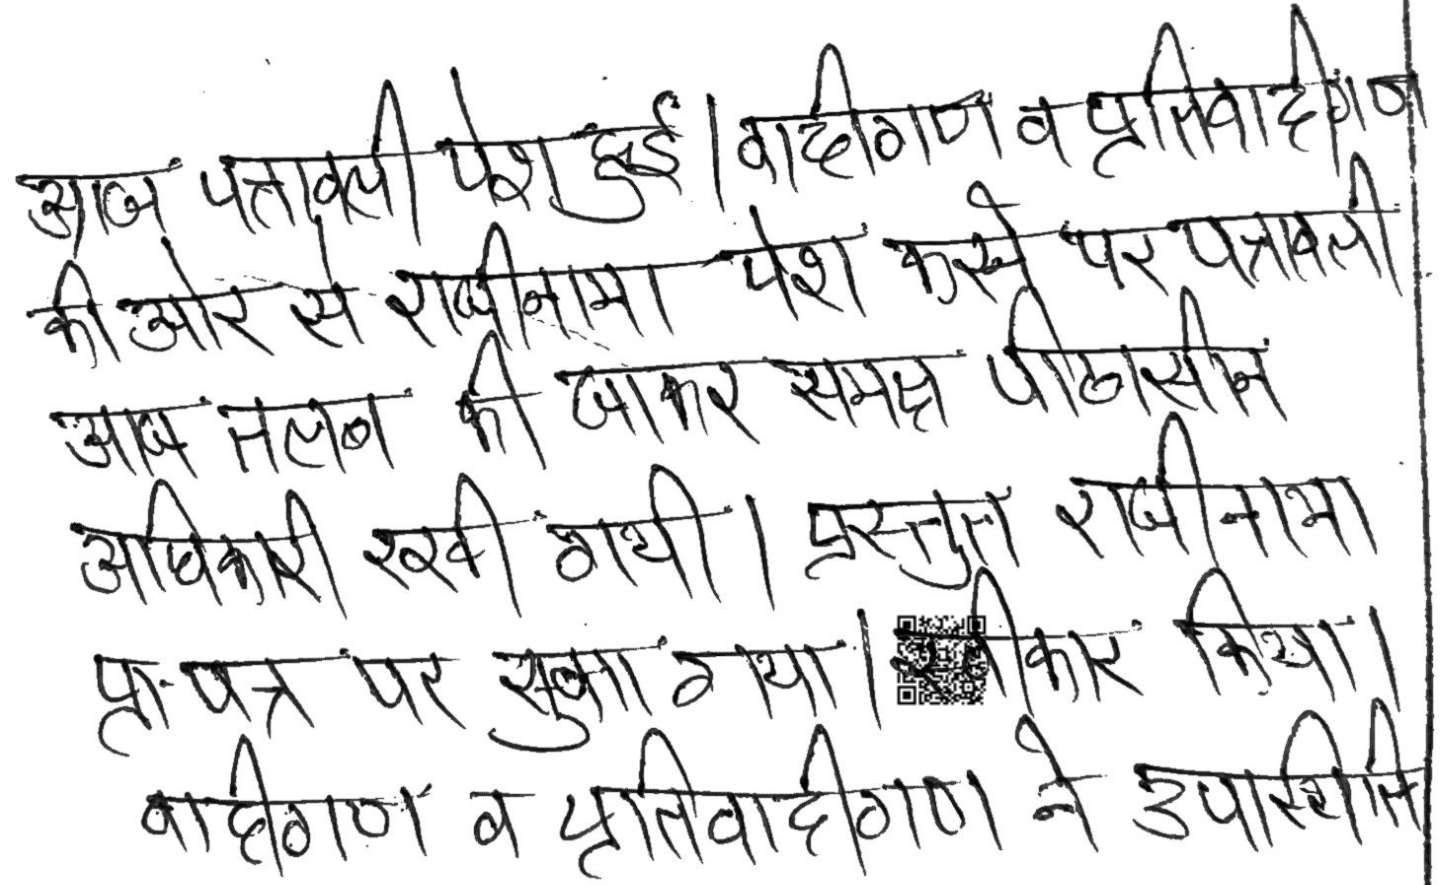 आज पत्रावली पेश हुई। वादीगण व प्रतिवादीगण
की ओर से राजीनामा पेश करने पर पत्रावली
आज तलब की जाकर समक्ष पीठासीन
अधिकारी रखी गयी। प्रस्तुत राजीनामा
प्रा. पत्र पर सुना गया। स्वीकार किया।
वादीगण व प्रतिवादीगण ने उपस्थिति